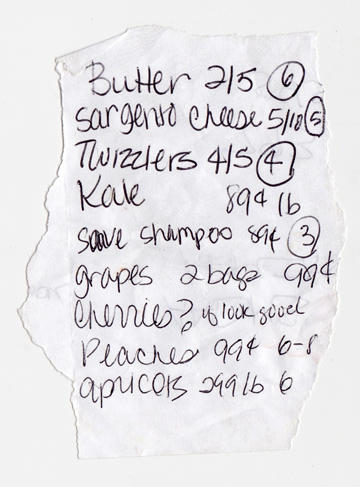 Butter 2/5 6
Sargento cheese 5/10 5
Twizzlers 4/5 4
Kale 89¢ lb
suave shampoo 89¢ 3
grapes 2 bags 99¢
Cherries? if look good
Peaches 99¢ 6-8
apricots 299 lb 6